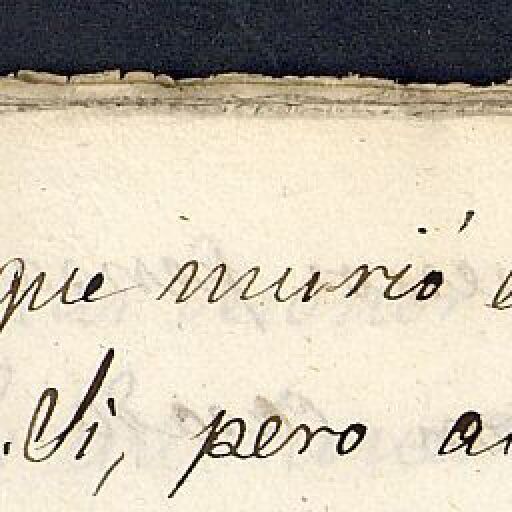 que murió
. Si, pero